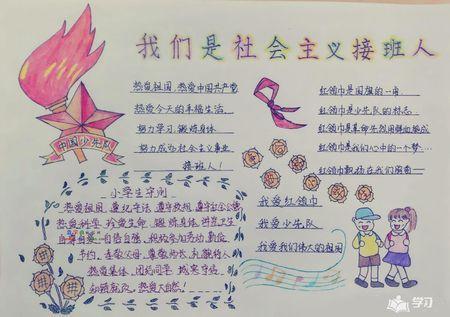 我们是社会主义接班人
热爱祖国,热爱中国共产党
热爱今天的幸福生活
努力学习,锻炼身体
努力成为社会主义事业
接班人!
中国少先队
红领巾是国旗的一角
红领巾是少先队的标志
红领巾是革命先烈用鲜血染成
红领巾是我们心中的一个梦…
红领巾飘扬在我们胸前
小学生守则
热爱祖国,遵纪守法,遵守校规,遵守社会公德
热爱科学,珍爱生命,锻炼身体,讲究卫生
自尊自爱,自信自强,积极参加劳动,勤俭
节约,孝敬父母,尊敬师长,礼貌待人
热爱集体,团结同学,诚实守信
热爱大自然!
我爱红领巾
我爱少先队
我爱我们伟大的祖国
学习